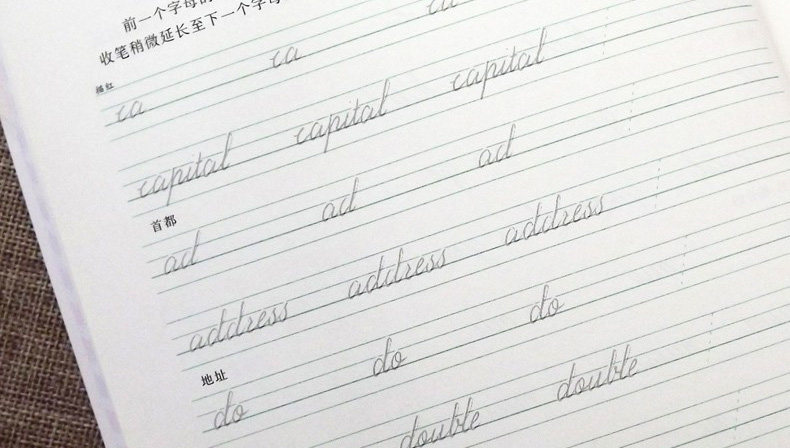 前一个字母的
收笔稍微延长至下一个字母
描红
ca ca ca
capital capital capital
首都
ad ad ad
address address address
地址
do do do
double double